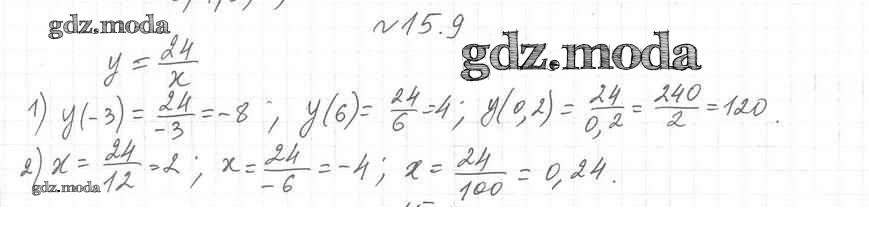 gdz.moda
№15.9
gdz.moda
y = 24/x
1) y(-3) = 24/-3 = -8 ; y(6) = 24/6 = 4 ; y(0,2) = 24/0,2 = 240/2 = 120 .
2) x = 24/12 = 2 ; x = 24/-6 = -4 ; x = 24/100 = 0,24 .
gdz.moda